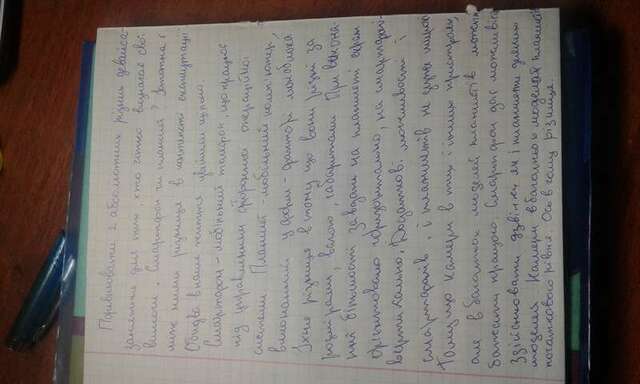 Порівнювати 2 абсолютних різних девайса-
заняття для тих хто чітко визначає свої
вимоги. Смартфон чи планшет?
між ними різниця в контексті експлуатації
Обидва в наше життя увійшли щільно.
Смартфон - мобільний телефон, що працює
під управлінням сторонньої операційної
системи Планшет - мобільний комп'ютер,
виконаний у форм - факторі моноблока
Їхня різниця в тому що вони різні за
розмірами, вагою, габаритами При викона-
нні більшості завдань на планшеті екран
орієнтовано горизонтально, на смартфоні-
вертикально. Додаткові можливості і
смартфонів, і планшетів не дуже широкі
Тому що камери в тих і інших пристроях,
але в багатьох моделей планшетів можуть
бажати кращого. Смартфон дає можливість
здійснювати дзвінки як і планшети деяких
моделей Камери в багатьох моделей планшетів
початкового рівня. Ось в чому різниця.